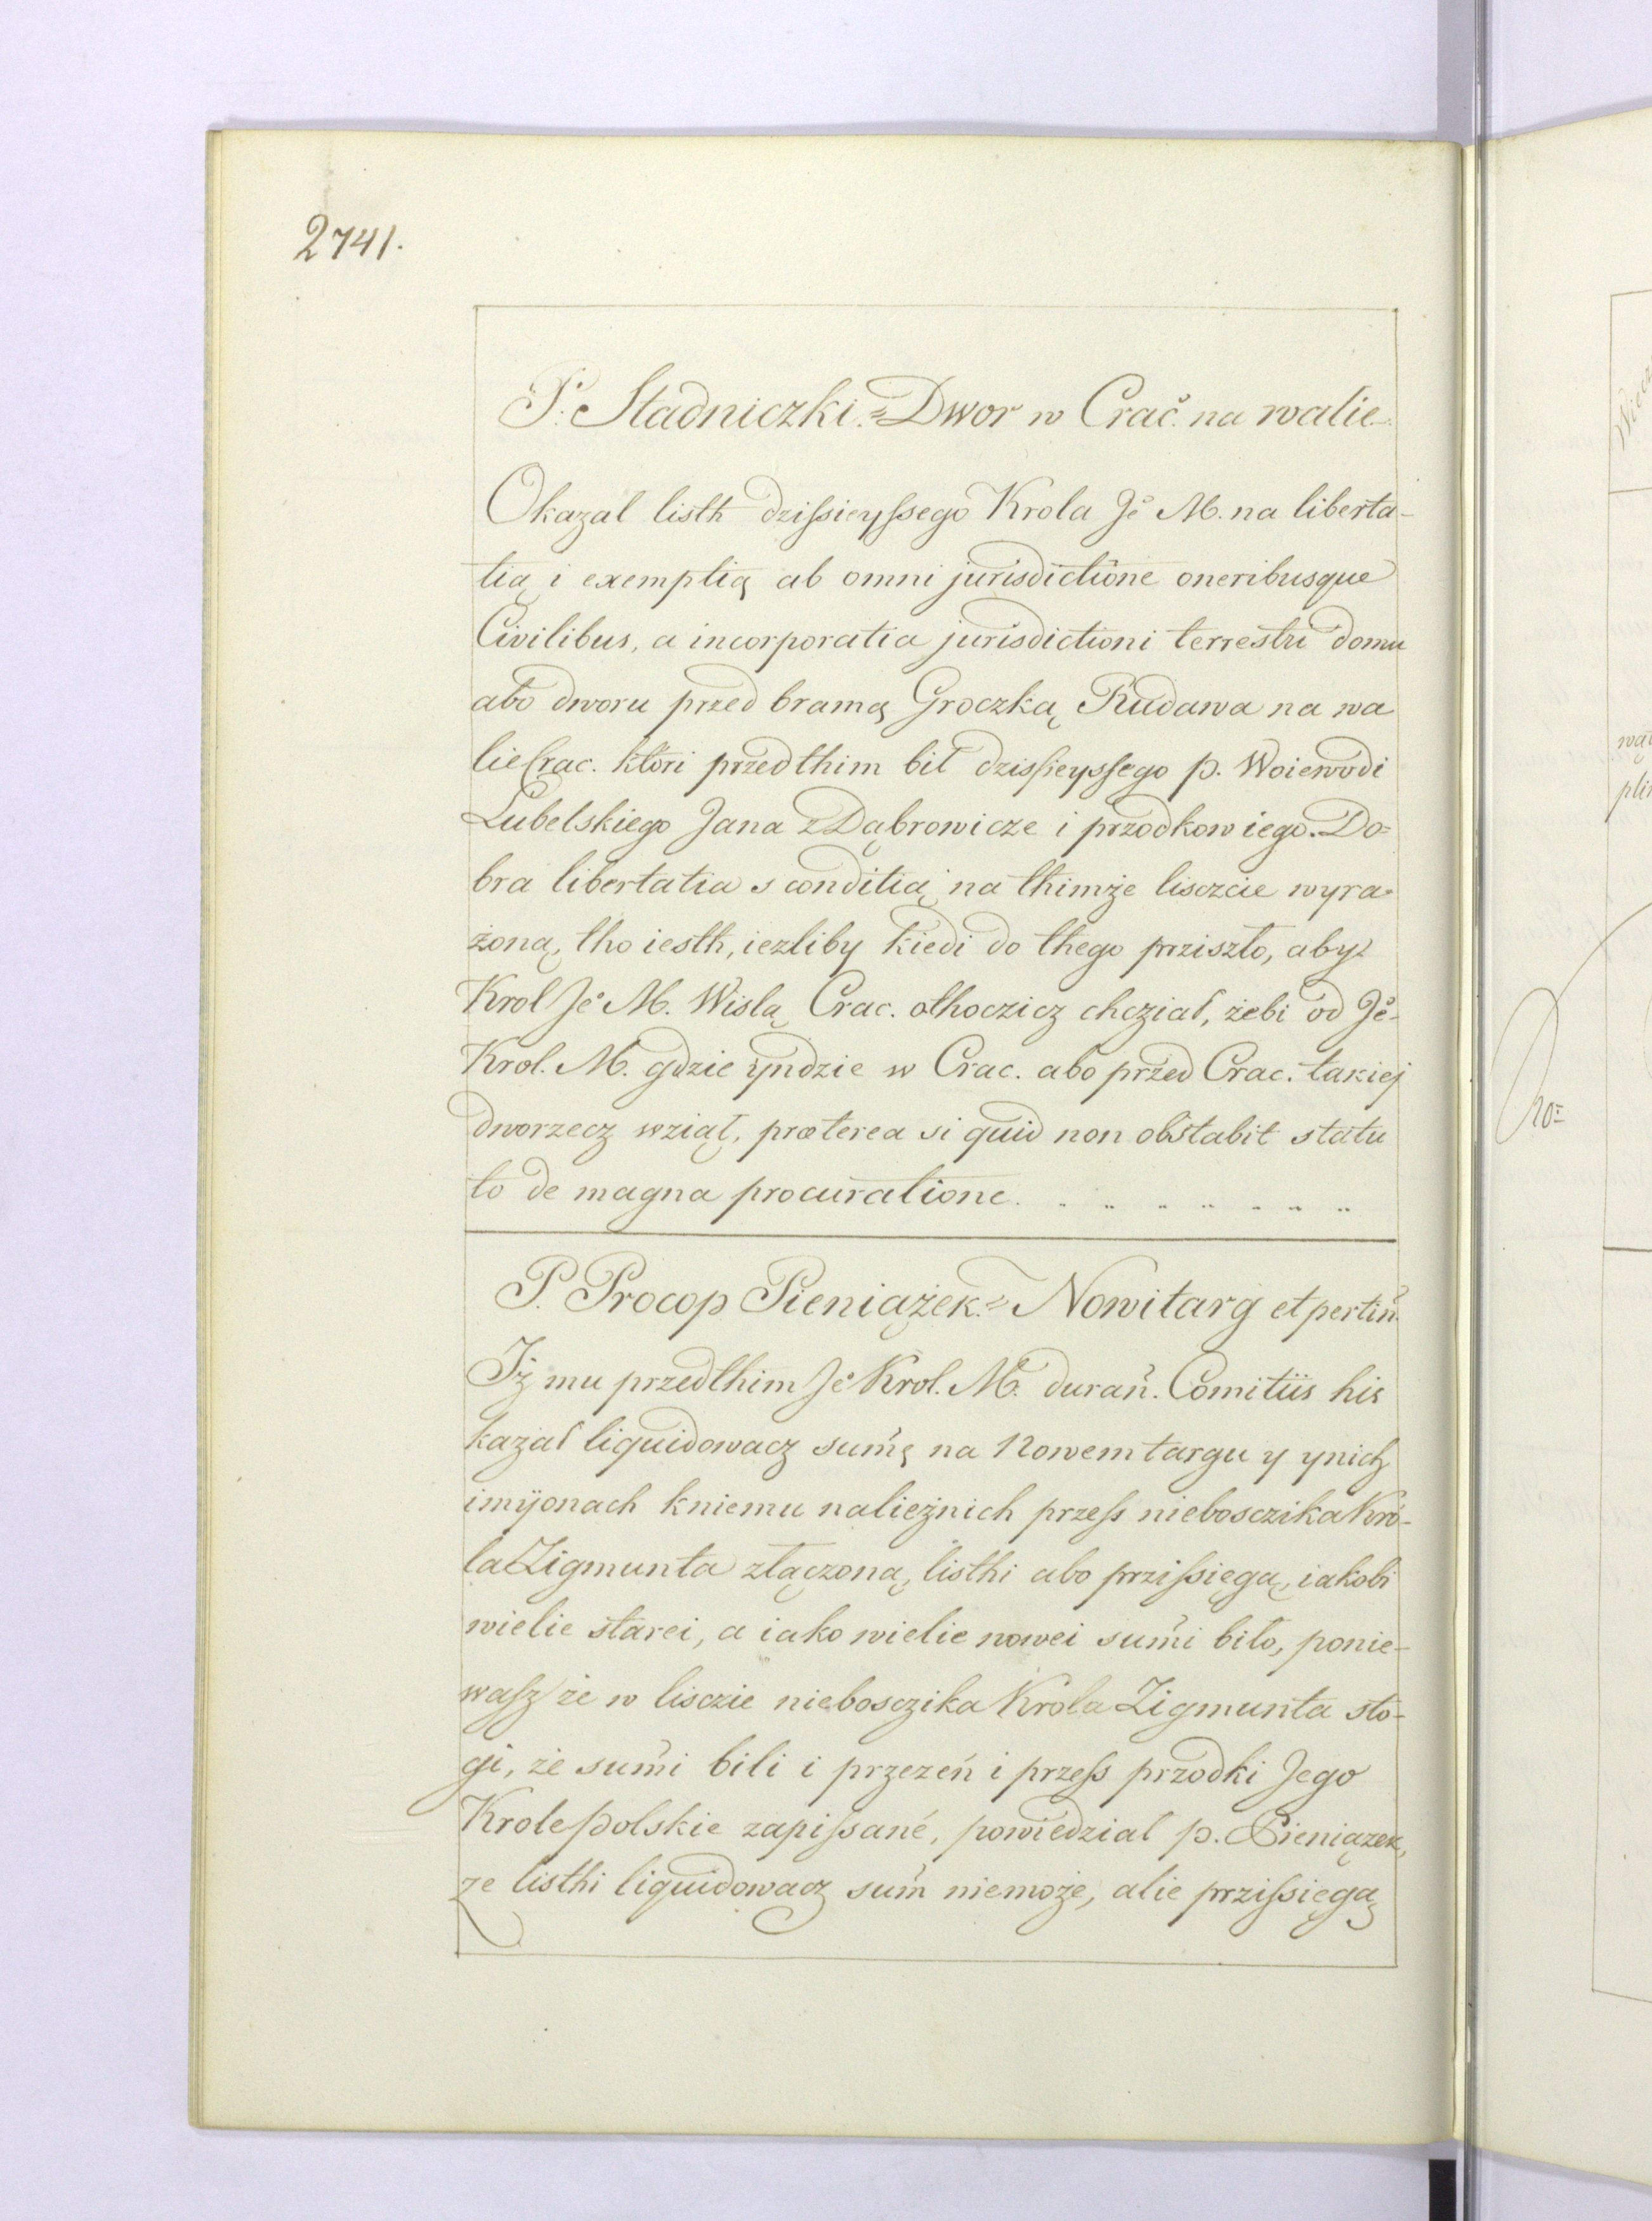 2741.
P. Stadniczki.=Dwor w Crac. na walie
Okazal listh dzissieyssego Krola Je M. na liberta-
tią i exemptią ab omni jurisdictione oneribusque
Civilibus, a incorporatia jurisdictioni terrestri domu
abo dworu przed bramą Groczką Rudawa na wa
lie Crac. ktori przedthim bił dzissieyssego p. Woiewodi
Lubelskiego Jana z Dąbrowicze i przodkow iego. Do=
bra libertatia s conditią na thimże lisczcie wyra=
żoną, tho iesth, iezliby kiedi do thego prziszło, aby
Krol Je M. Wislą Crac. othoczicz chcział, żebi od Je
Krol. M. gdzie yndzie w Crac. abo przed Crac. takiej
dworzecz wziął, præterea si quid non obstabit statu
to de magna procuratione.
P. Procop Pieniążek.= Nowitarg et pertin.
Iż mu przedthim Je Krol. M. duran. Comitiis his
kazał liquidowacz sumę na Nowemtargu y ynich
imijonach kniemu należnich przess nieboszczika Kro-
la Zigmunta złączoną, listhi abo przissięgą, iakobi
wielie starei, a iako wielie nowei sumi biło, ponie-
wasz że w lisczie nieboszczika Krola Zigmunta sto-
gi, że sumi bili i przezeń i przess przodki Jego
Krole polskie zapissané, powiedzial p. Pieniązek,
ze listhi liquidowacz sum niemoże, alie przissięgą
Wiecz
wą
pli
no=